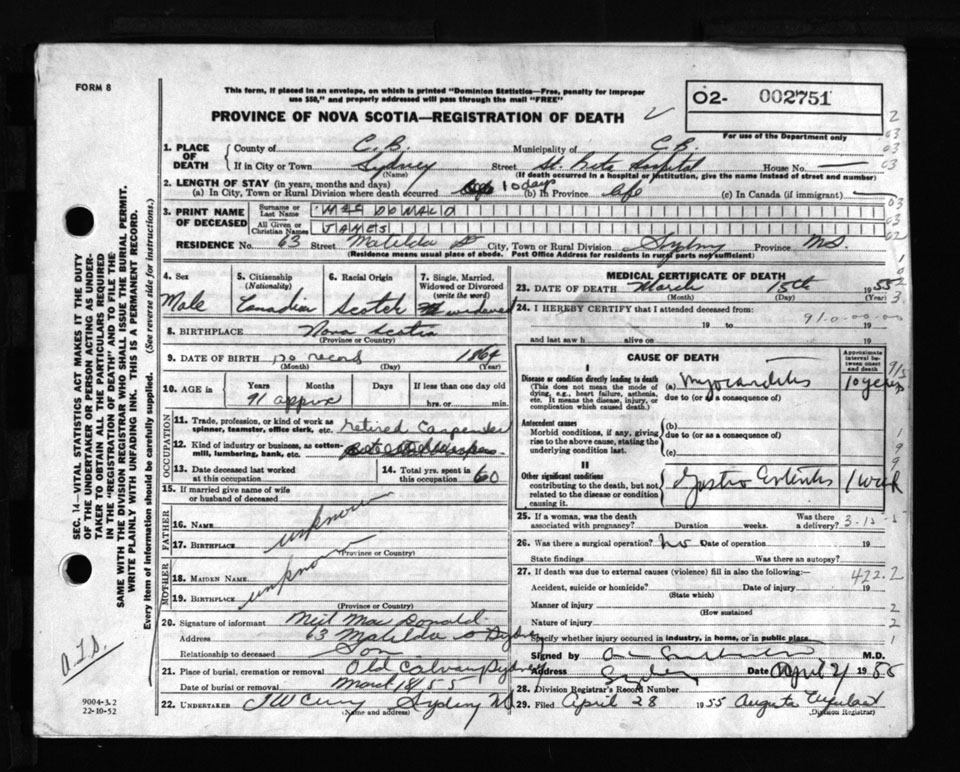 FORM 8
This form, if placed in an envelope, on which is printed "Dominion Statistics—Free, penalty for improper
use $50," and properly addressed will pass through the mail "FREE"
PROVINCE OF NOVA SCOTIA—REGISTRATION OF DEATH
O2- 002751
For use of the Department only
1. PLACE OF DEATH
County of C.B. Municipality of C.B.
If in City or Town Sydney Street Hospital House No.
(Name) (If death occurred in a hospital or institution, give the name instead of street and number)
2. LENGTH OF STAY (in years, months and days)
(a) In City, Town or Rural Division where death occurred 10 days (b) In Province life (c) In Canada (if immigrant)
3. PRINT NAME OF DECEASED
Surname or Last Name
All Given or Christian Names JAMES
RESIDENCE No. 63 Street Matilda St City, Town or Rural Division Sydney Province N.S.
(Residence means usual place of abode. Post Office Address for residents in rural parts not sufficient)
4. Sex
Male
5. Citizenship
(Nationality)
Canadian
6. Racial Origin
Scotch
7. Single, Married, Widowed or Divorced
(write the word)
widowed
8. BIRTHPLACE Nova Scotia
(Province or Country)
9. DATE OF BIRTH no record 1864
(Month) (Day) (Year)
10. AGE in Years Months Days If less than one day old
91 approx hrs. or min.
OCCUPATION
11. Trade, profession, or kind of work as
spinner, teamster, office clerk, etc. retired Carpenter
12. Kind of industry or business, as cotton-
mill, lumbering, bank, etc.
13. Date deceased last worked
at this occupation
14. Total yrs. spent in
this occupation 60
15. If married give name of wife
or husband of deceased
FATHER
16. NAME unknown
17. BIRTHPLACE
(Province or Country)
MOTHER
18. MAIDEN NAME
19. BIRTHPLACE
(Province or Country)
20. Signature of informant Neil Mac Donald
Address 63 Matilda St Sydney
Relationship to deceased Son
21. Place of burial, cremation or removal Old Calvary Sydney
Date of burial or removal March 18/55
22. UNDERTAKER Sydney
(Name and address)
MEDICAL CERTIFICATE OF DEATH
23. DATE OF DEATH March 15th 1955
(Month) (Day) (Year)
24. I HEREBY CERTIFY that I attended deceased from:
19 to 19
and last saw h alive on 19
CAUSE OF DEATH
Approximate interval between onset and death
I
Disease or condition directly leading to death
(This does not mean the mode of
dying, e.g., heart failure, asthenia,
etc. It means the disease, injury, or
complication which caused death.)
(a) Myocarditis 10 years
due to (or as a consequence of)
Antecedent causes
Morbid conditions, if any, giving
rise to the above cause, stating the
underlying condition last.
(b)
due to (or as a consequence of)
(c)
II
Other significant conditions
contributing to the death, but not
related to the disease or condition
causing it.
Gastro Enteritis 1 week
25. If a woman, was the death
associated with pregnancy? Duration weeks. Was there a delivery?
26. Was there a surgical operation? no Date of operation 19
State findings Was there an autopsy?
27. If death was due to external causes (violence) fill in also the following:—
422.2
Accident, suicide or homicide? Date of injury 19
(State which)
Manner of injury
(How sustained
Nature of injury
Specify whether injury occurred in industry, in home, or in public place.
Signed by M.D.
Address Sydney Date April 21 1955
28. Division Registrar's Record Number
29. Filed April 28 1955 Augusta
(Division Registrar)
SEC. 14—VITAL STATISTICS ACT MAKES IT THE DUTY
OF THE UNDERTAKER OR PERSON ACTING AS UNDER-
TAKER TO OBTAIN ALL THE PARTICULARS REQUIRED
IN THE "REGISTRATION OF DEATH" AND TO FILE THE
SAME WITH THE DIVISION REGISTRAR WHO SHALL ISSUE THE BURIAL PERMIT.
WRITE PLAINLY WITH UNFADING INK. THIS IS A PERMANENT RECORD.
Every item of information should be carefully supplied. (See reverse side for instructions.)
9004-3.2
22-10-52